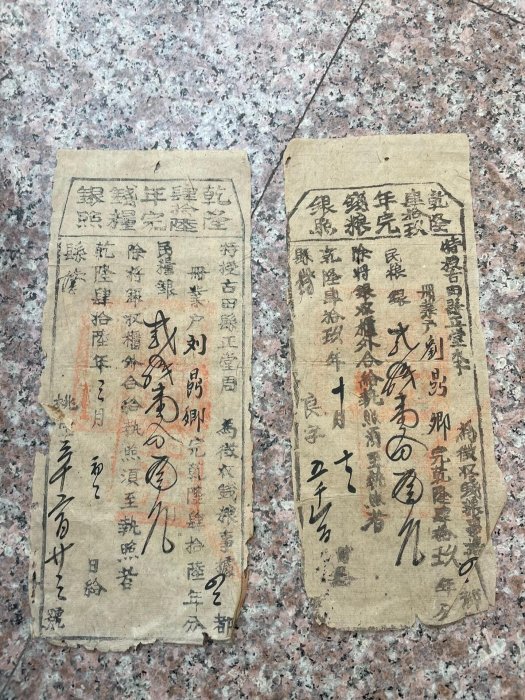 乾隆肆拾玖年完錢粮銀照
特授古田縣正堂 為徵收錢粮事據 都
冊業戶劉鼎卿 完乾隆肆拾玖年分
民粮銀 貳錢壹分
除將銀收櫃外合給執照須至執照者
乾隆肆拾玖年十月
縣 良字五千
乾隆肆拾陸年完錢糧銀照
特授古田縣正堂周 為徵收錢粮事據 都
冊業戶刘鼎卿完乾隆肆拾陸年分
民糧銀 貳錢壹分
除將銀收櫃外合給執照須至執照者
乾隆肆拾陸年三月 初二 日給
縣 桃 千六百廿三號